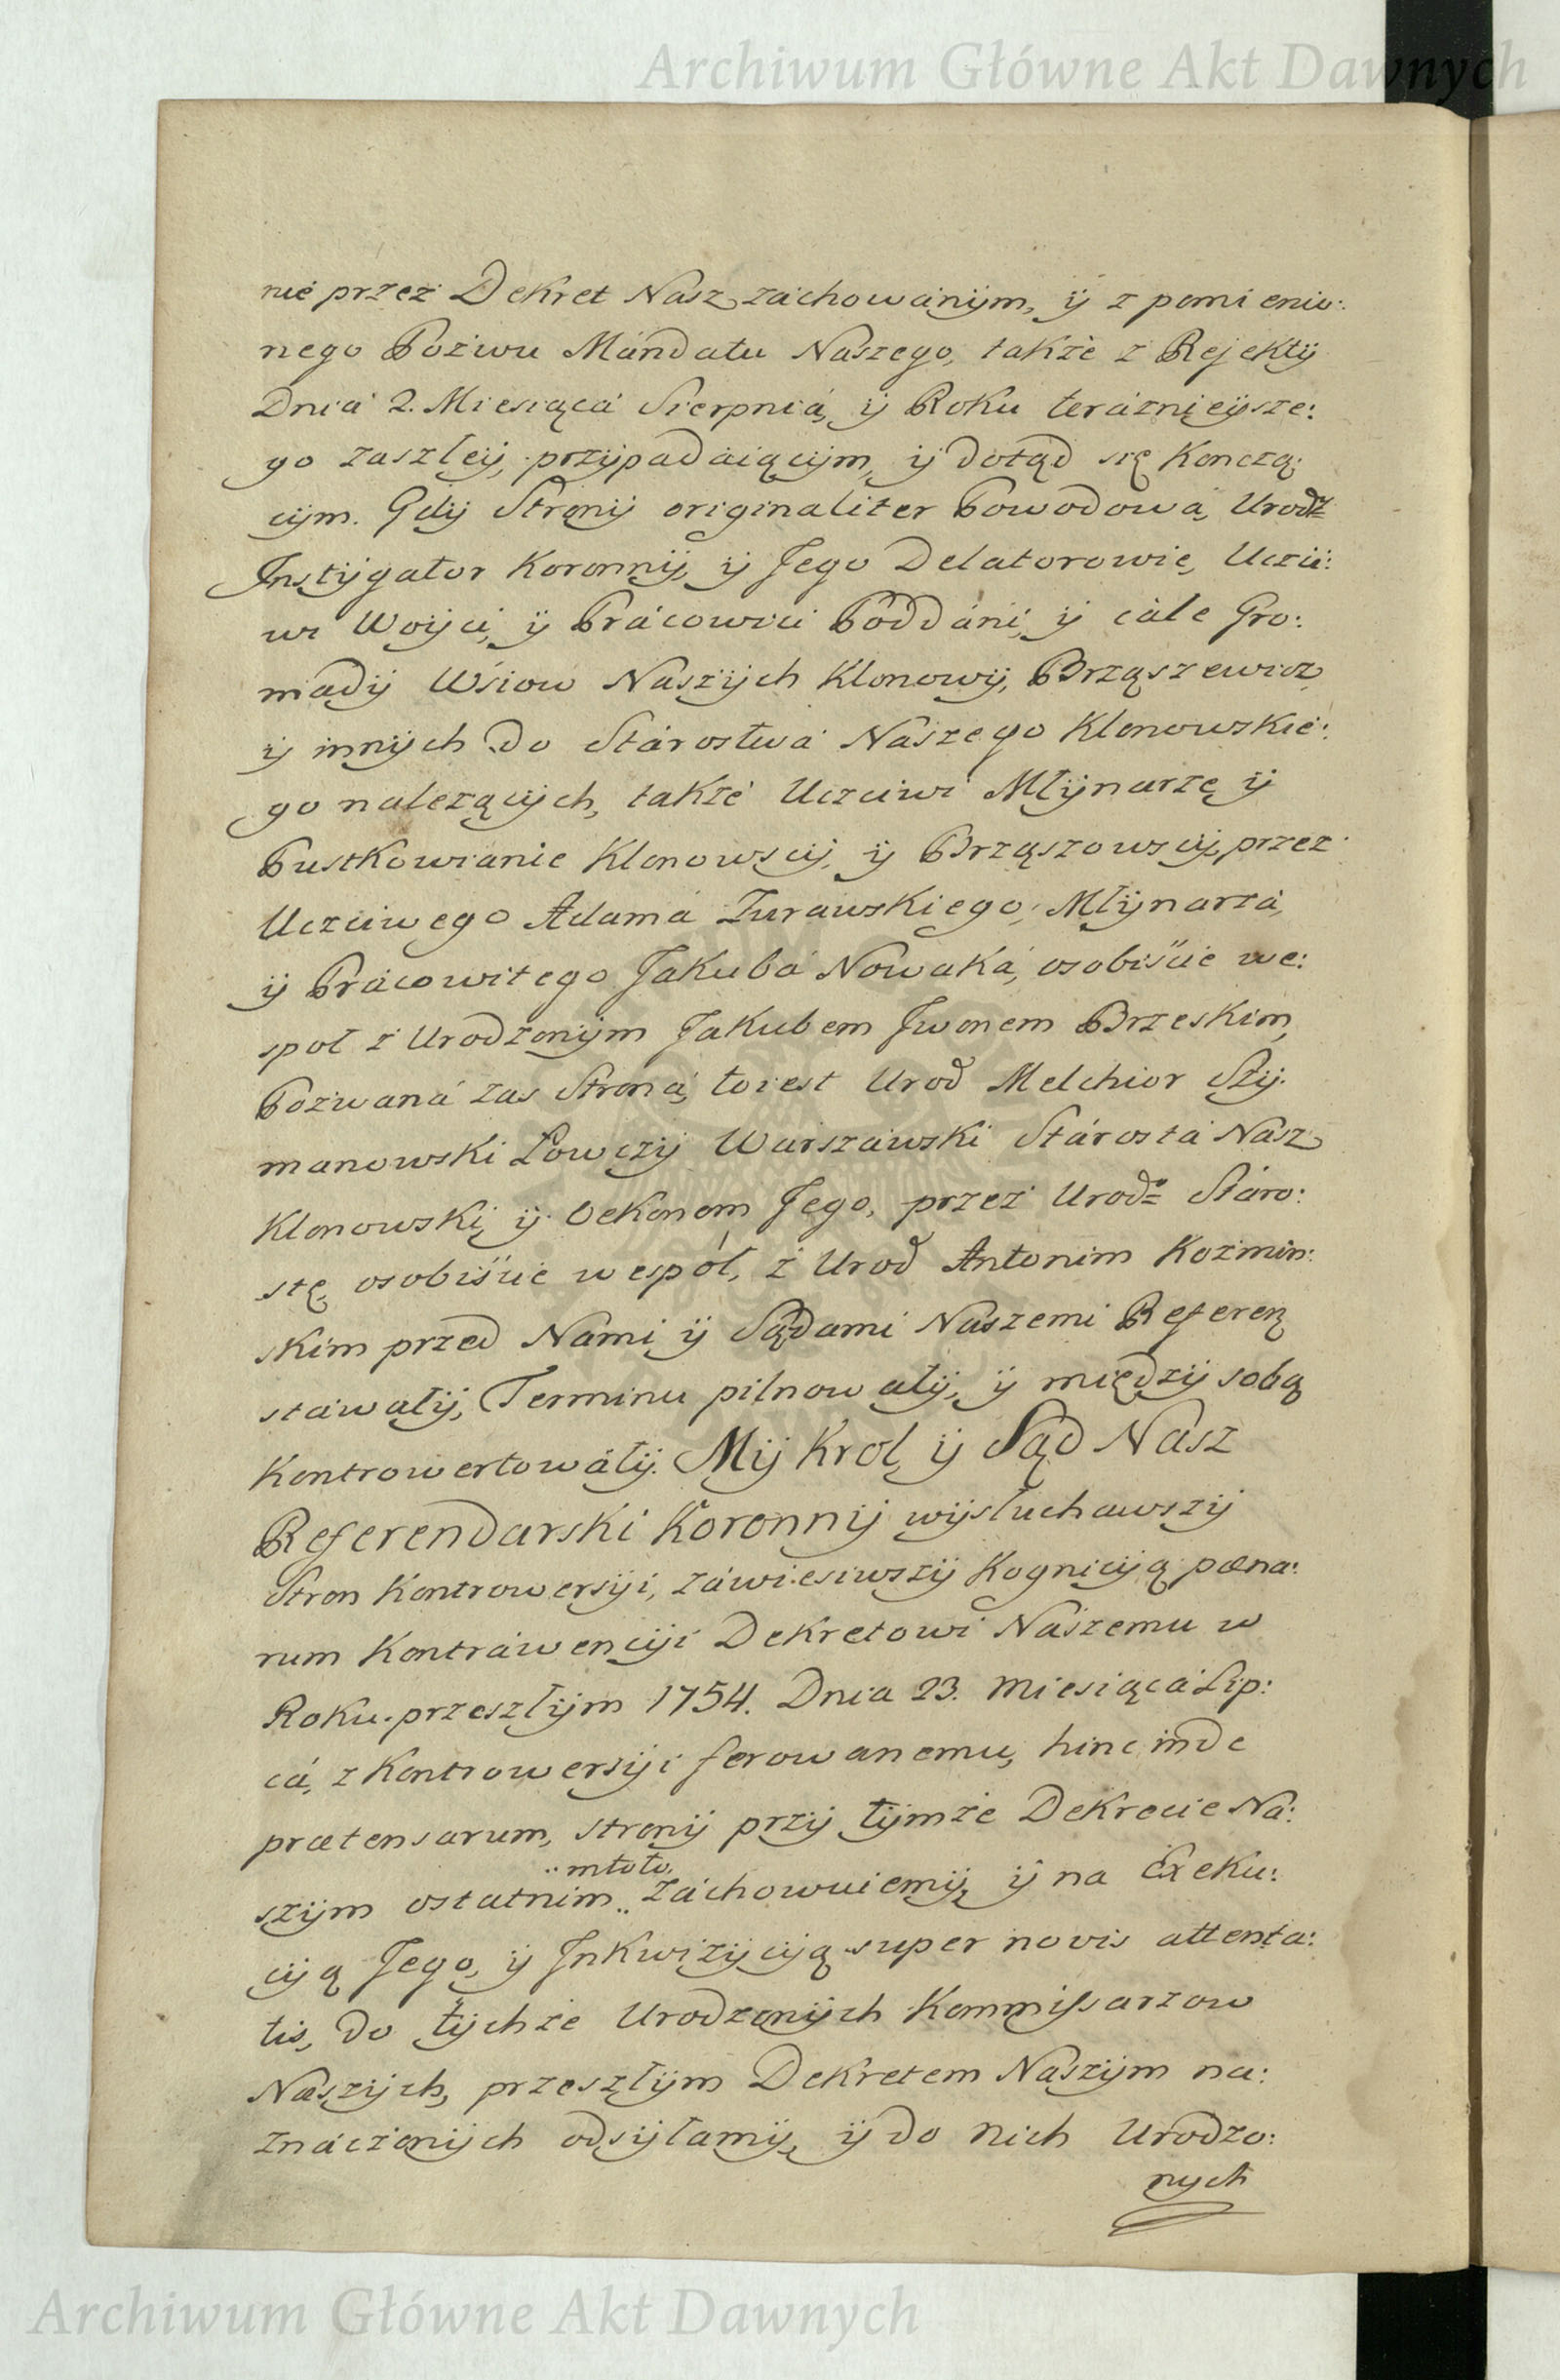 Archiwum Główne Akt Dawnych
nie przez Dekret Nasz zachowánÿm, ÿ z pomienio:
nego Pozwu Mándatu Naszego, także z Rejektÿ
Dniá 2. Miesiącá Sierpniá, ÿ Roku teráznieÿsze:
go zaszłeÿ, przÿpadáiącÿm, ÿ dotąd się Kończą:
cÿm. Gdÿ Stronÿ originaliter Powodowá, Urodz
Instÿgator Koronnÿ, ÿ Jego Delatorowie, Uczci:
wi Woÿci, ÿ Prácowici Poddáni, ÿ cáłe Gro:
madÿ Wśiow Naszÿch Klonowÿ, Brząszewicz
ÿ innÿch do Stárostwá Nászego Klonowskie:
go nalezącÿch, także Uczciwi Młÿnarze ÿ
Pustkowianie Klonowscÿ, ÿ Brząszowscÿ, przez
Uczciwego Adamá Zurawskiego, Młÿnarzá,
ÿ Prácowitego Jakubá Nowaká, osobiście we:
społ z Urodzonÿm Jakubem Iwonem Brzeskim,
Pozwaná zas Stroná, toiest Urod Melchior Szÿ:
manowski Łowczÿ Warszáwski Stárostá Nász
Klonowski, ÿ Oekonom Jego, przez Urodz Stáro:
stę, osobiście wespół, z Urod Antonim Kozmin:
skim przed Námi ÿ Sądami Nászemi Referen
stáwałÿ, Terminu pilnowałÿ, ÿ międzÿ sobą
Kontrowertowáłÿ. Mÿ Krol, ÿ Sąd Nasz
Referendarski Koronnÿ wÿsłuchawszÿ
Stron Kontrowersÿi, záwiesiwszÿ Kognicÿą pœna:
rum Kontráwencÿi Dekretowi Nászemu w
Roku przeszłÿm 1754. Dnia 23. Miesiącá Lip:
cá, z Kontrowersÿi ferowanemu, hinc inde
prætensarum, stronÿ przÿ tÿmże Dekrecie Ná:
szÿm ostatnim .. záchowuiemÿ, ÿ na Exeku:
.. in toto,
cÿą Jego, ÿ Inkwizÿcÿą super novis attenta:
tis, do tÿchże Urodzonÿch Kommissarzow
Naszÿch, przeszłÿm Dekretem Naszÿm na:
znáczonÿch odsÿłamÿ, ÿ do nich Urodzo:
nÿch
Archiwum Główne Akt Dawnych